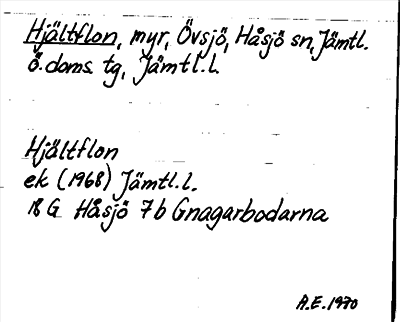 Hjältflon, myr, Övsjö, Håsjö sn, Jämtl.
Ö. doms. tg, Jämtl.l.
Hjältflon
ek (1968) Jämtl.l.
18 G Håsjö 7b Gnagarbodarna
A.E. 1970